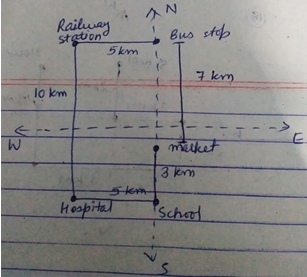 N
Railway
station
Bus stop
5km
7 km
10 km
W
E
market
3 km
5 km
Hospital
School
S